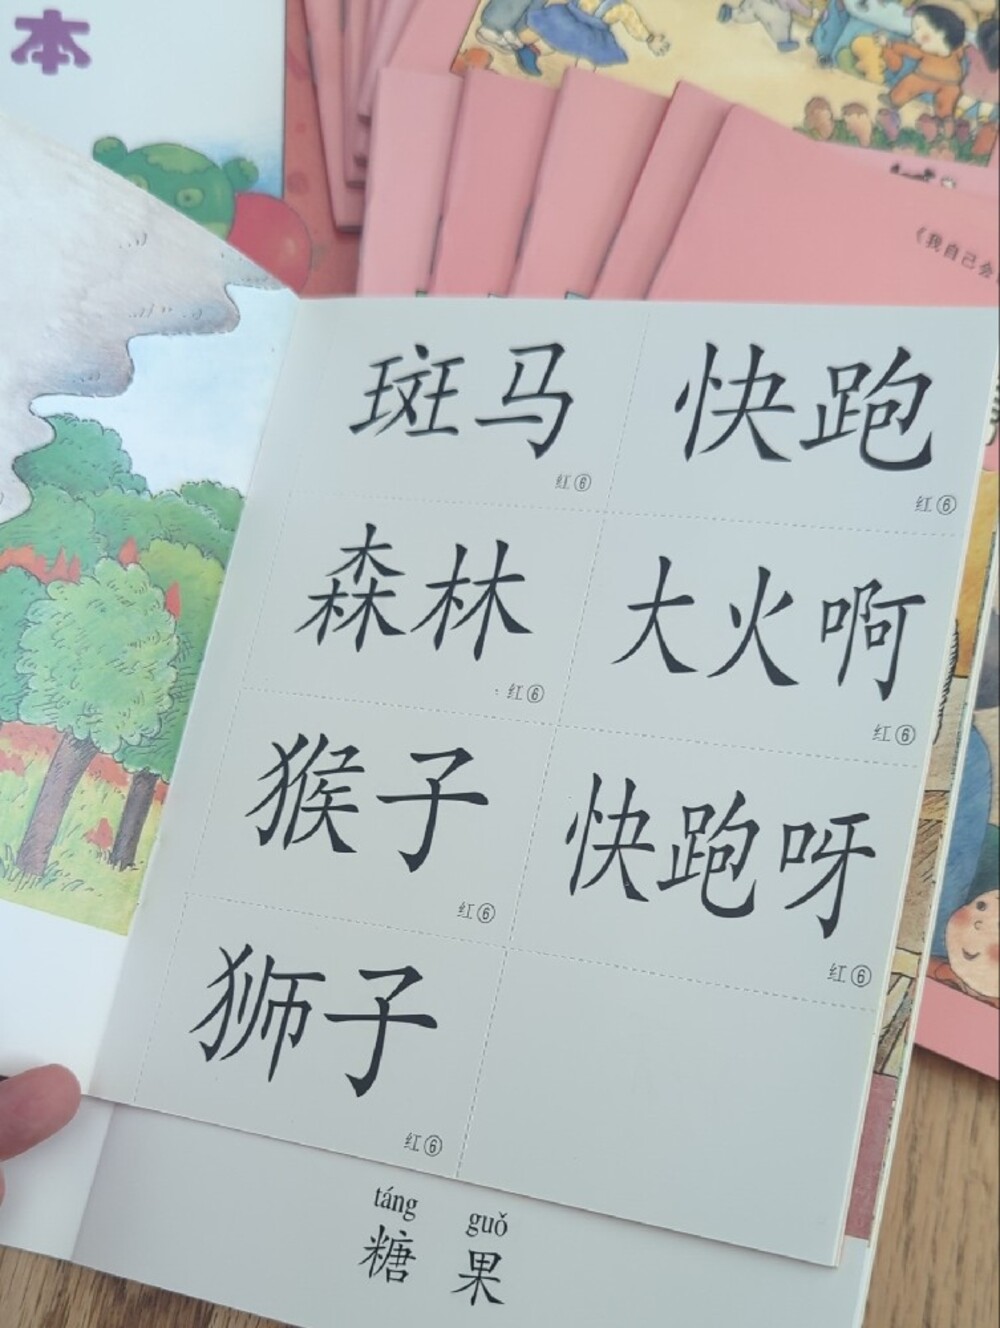 本
《我自己会
斑马
红⑥
快跑
红⑥
森林
红⑥
大火啊
红⑥
猴子
红⑥
快跑呀
红⑥
狮子
红⑥
táng guǒ
糖果